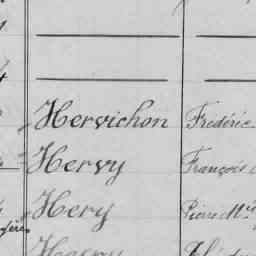 Hervichon Frédéric
Hervy François
Hery Pierre Mie